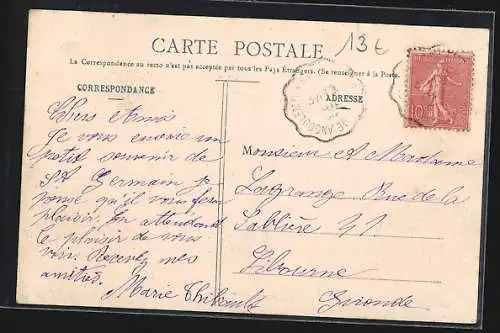 13€
CARTE POSTALE
La Correspondance au recto n'est pas acceptée par tous les Pays Étrangers. (Se renseigner à la Poste.
CORRESPONDANCE
ADRESSE
Chers Amis
Je vous envoie un
petit souvenir de
St Germain je
pense qu'il vous fera
plaisir. En attendant
le plaisir de vous
voir. Recevez mes
amitiés.
Marie Thibault
Monsieur et Madame
Lagrange Rue de la
Sablière 41
Libourne
Gironde
10